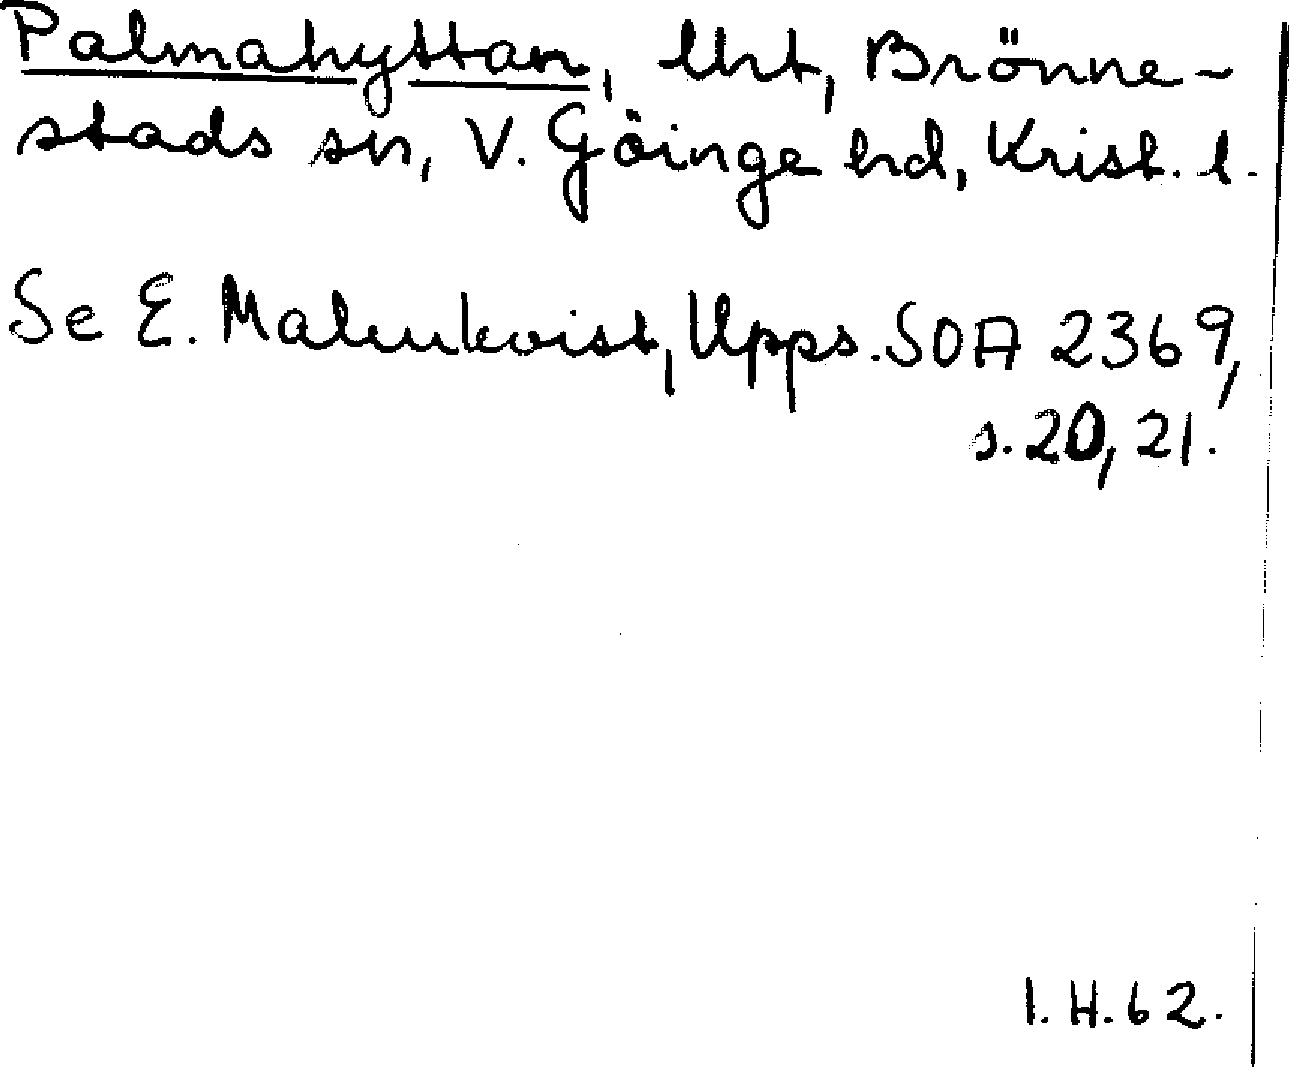 Palmahyttan, lht, Brönne-
stads sn, V. Göinge hd, Krist. l.
Se E. Malmkvist, Upps. SOA 2369,
s. 20, 21.
I. H. 62.